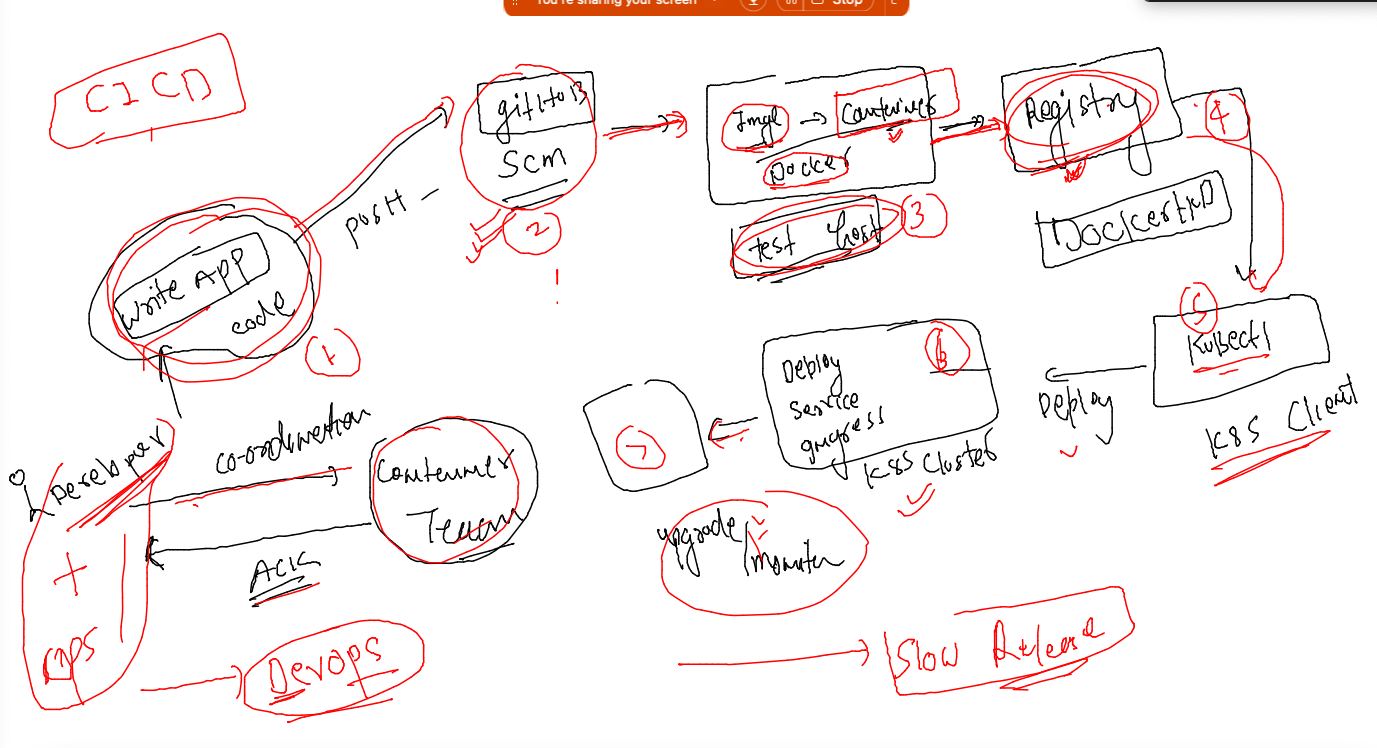 You're sharing your screen
Stop
CICD
Write App
code
1
PUSH -
SCM
2
!
Docker
test host
3
Registry
4
5
Kubectl
K8S Client
Deploy
6
Deploy
Service
K8S Cluster
7
upgrade
/monitor
Developer
+
OPS
co-ordination
Container
Team
ACK
Devops
Slow Release